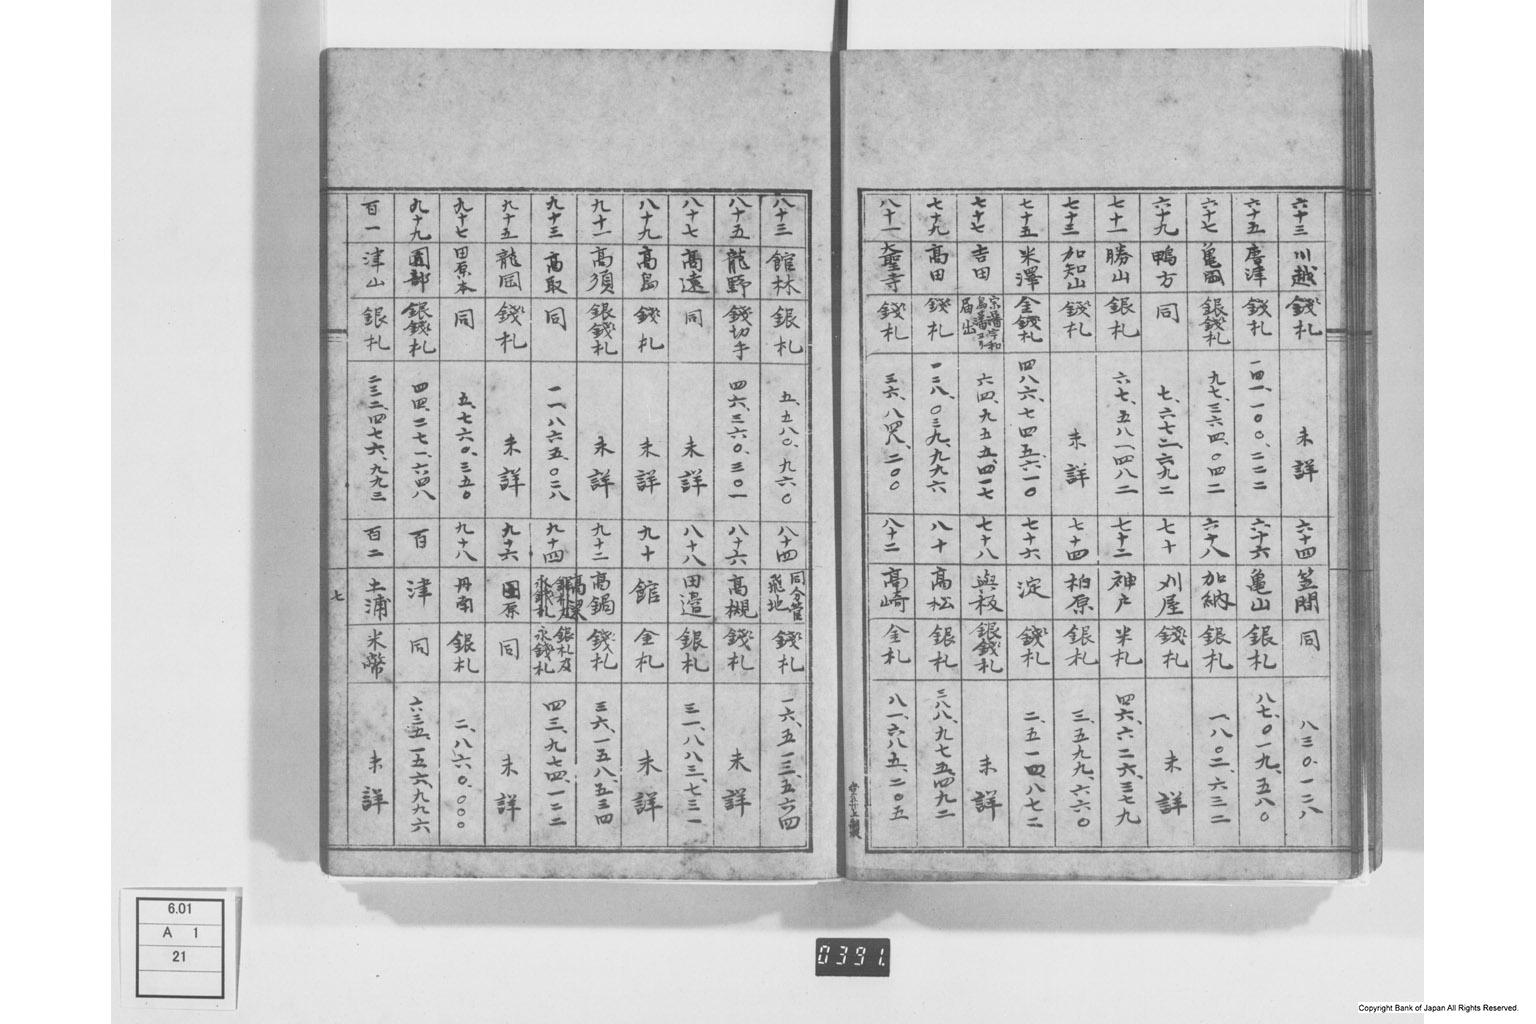 六十三 川越 錢札 未詳
六十四 笠間 同 八三〇、一二八
六十五 唐津 錢札 一四一、一〇〇、二二二
六十六 亀山 銀札 八七、〇一九、五八〇
六十七 亀岡 銀錢札 九七、三六四、〇四二
六十八 加納 銀札 一、八〇二、六三二
六十九 鴨方 同 七、六七二、六九二
七十 刈屋 錢札 未詳
七十一 勝山 銀札 六七、五八一、四八二
七十二 神戸 米札 四六、六二六、三七九
七十三 加知山 錢札 未詳
七十四 柏原 銀札 三、五九九、六六〇
七十五 米澤 金錢札 四八六、七四五、六一〇
七十六 淀 錢札 二、五一四、八七二
七十七 吉田 宗藩宇和島藩ヨリ届出 六四、九五五、四一七
七十八 與板 銀錢札 未詳
七十九 高田 錢札 一二八、〇三九、九九六
八十 高松 銀札 三八八、九七五、四九二
八十一 大聖寺 錢札 三六、八四八、二〇〇
八十二 高崎 金札 八一、六八五、二〇五
八十三 館林 銀札 五、五八〇、九六〇
八十四 同分管飛地 錢札 一六、五一三、五六四
八十五 龍野 錢切手 四六、三六〇、三〇一
八十六 高槻 錢札 未詳
八十七 高遠 同 未詳
八十八 田邉 銀札 三一、八八三、七三一
八十九 高島 錢札 未詳
九十 館 金札 未詳
九十一 高須 銀錢札 未詳
九十二 高鍋 錢札 三六、一五八、五三四
九十三 高取 同 一一、八六五、〇二八
九十四 高梁 銀札及永錢札 四三、九七四、一二二
九十五 龍岡 錢札 未詳
九十六 同 未詳
九十七 田原本 同 五、七六〇、三五〇
九十八 丹南 銀札 二、八六〇、〇〇〇
九十九 園部 銀錢札 四四、二七一、六四八
百 津 同 六三五、一五六、九九六
百一 津山 銀札 二三二、四七六、九九三
百二 土浦 米幣 未詳
七
6.01
A 1
21
0391.
Copyright Bank of Japan All Rights Reserved.